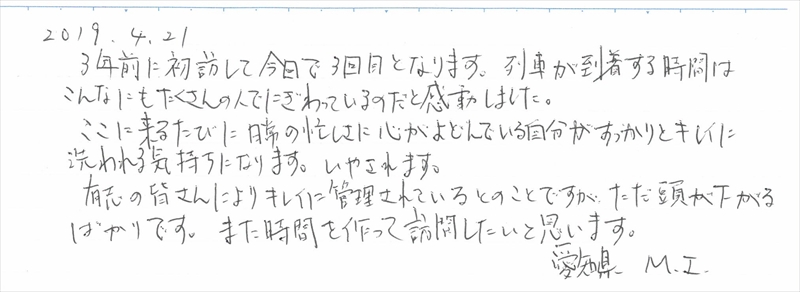 2019.4.21
3年前に初訪して今日で3回目となります。列車が到着する時間は
こんなにもたくさんの人でにぎわっているのだと感動しました。
ここに来るたびに日常の忙しさに心がよどんでいる自分がすっかりとキレイに
洗われる気持ちになります。いやされます。
有志の皆さんによりキレイに管理されているとのことですが、ただ頭が下がる
ばかりです。また時間を作って訪問したいと思います。
愛知県 M.I.